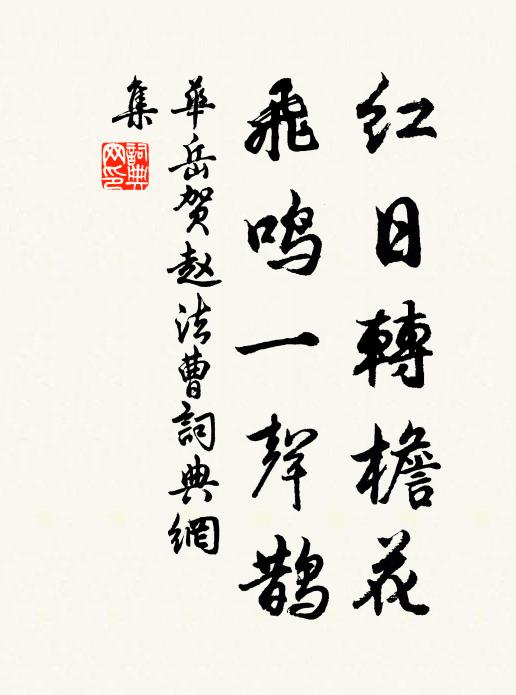 红日轉檐花
飛鸣一聲鹊
華岳贺赵法曹詞典網
集
詞典
网印